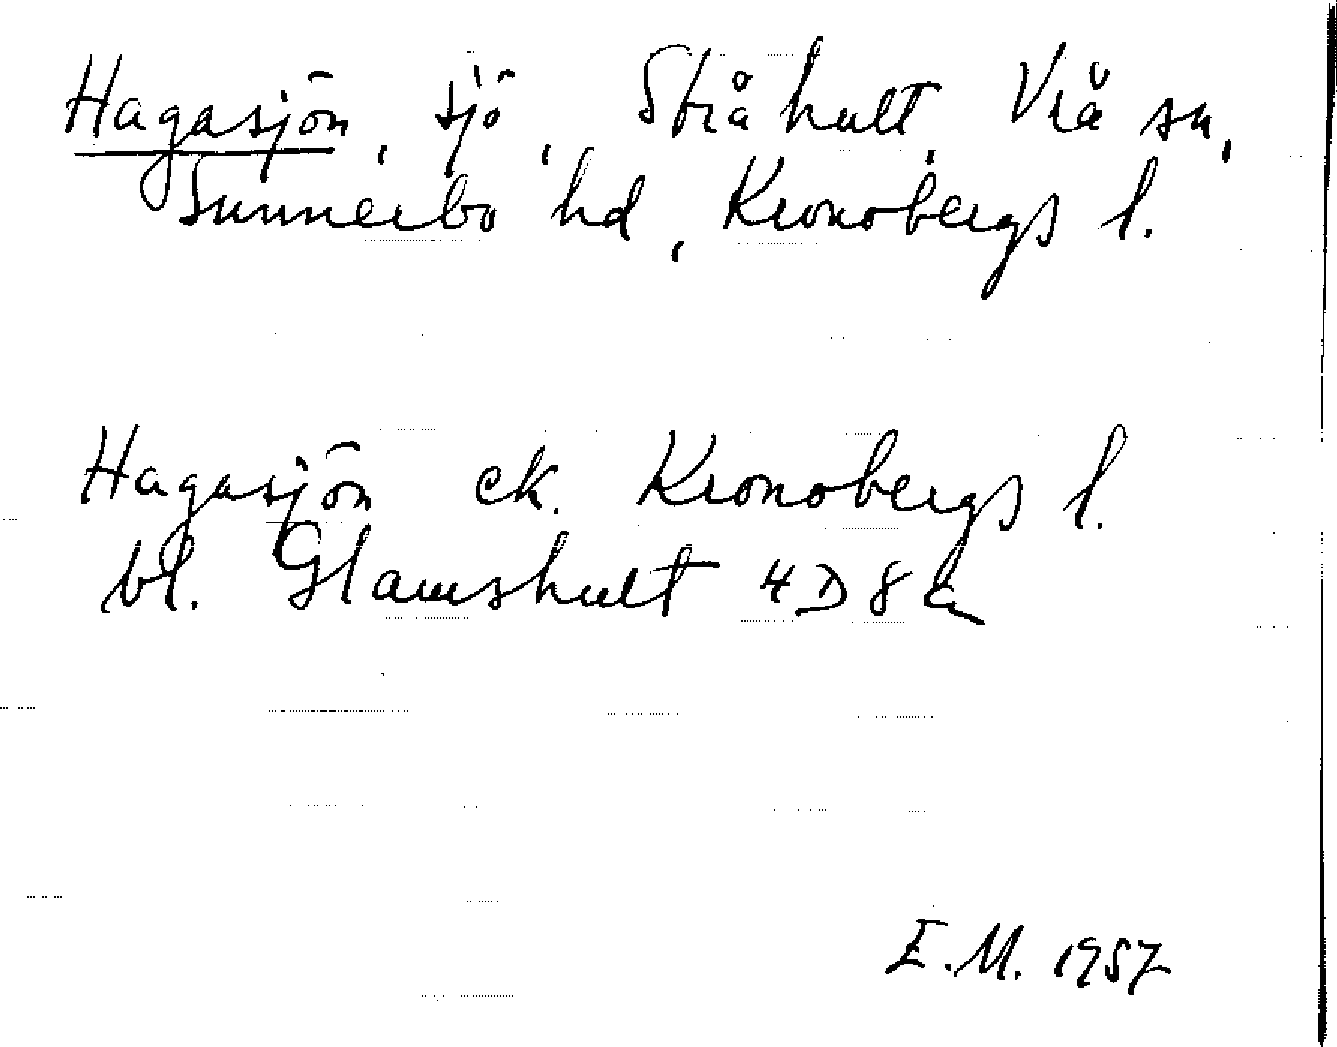 Hagasjön, sjö, Stråhult, Vrå sn,
Sunnerbo hd, Kronobergs l.
Hagasjön ek. Kronobergs l.
bl. Glamshult 4D8a
E.M. 1957